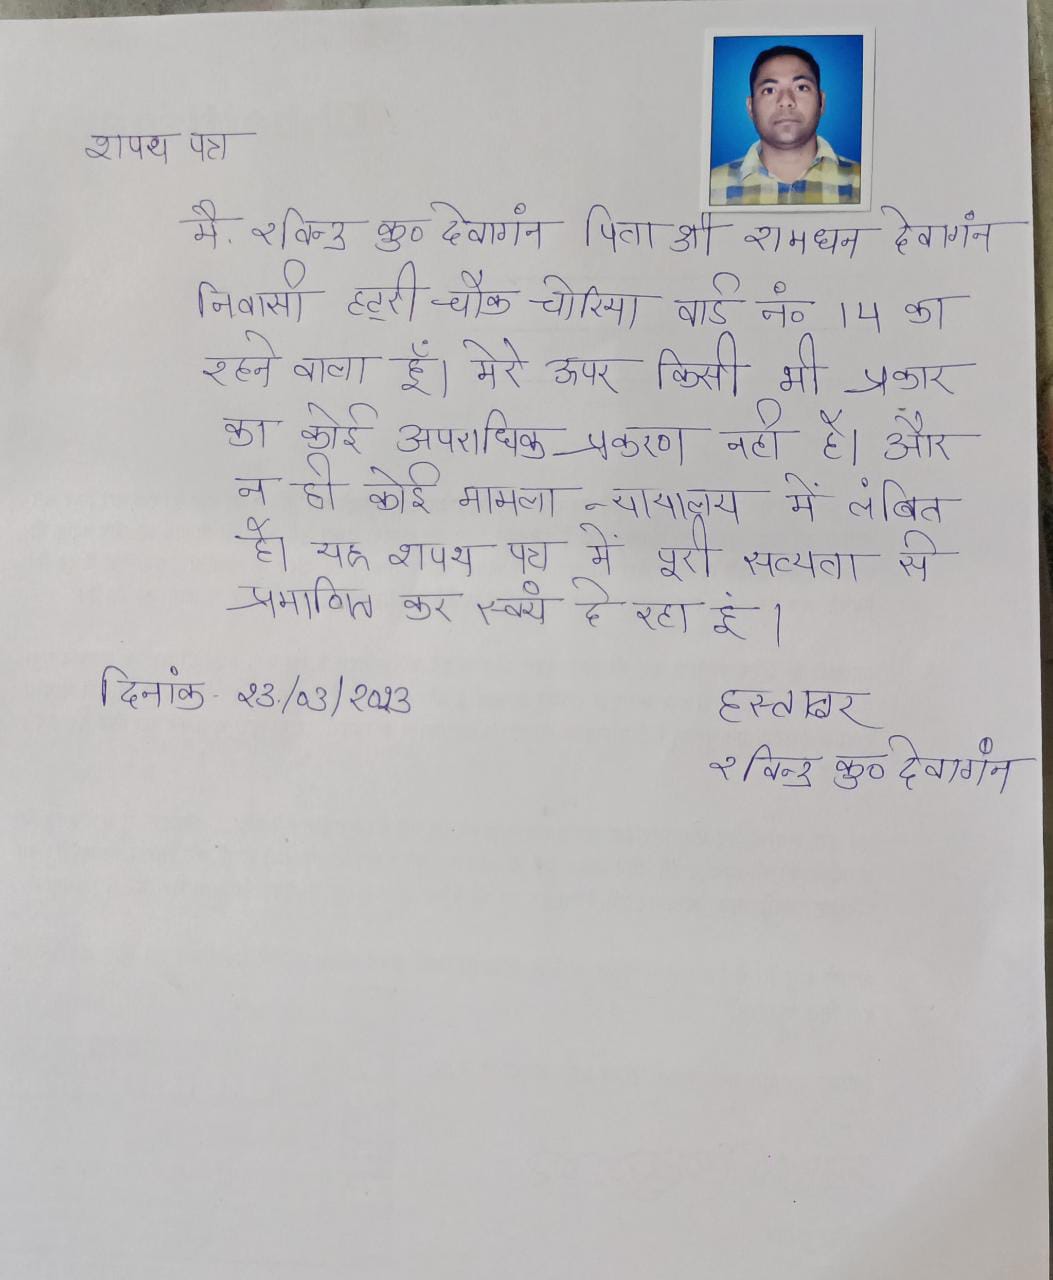 शपथ पत्र
मै. रविन्द्र कु० देवागंन पिता श्री रामधन देवागंन
निवासी हटरी चौक चोरिया वार्ड नं० 14 का
रहने वाला हूँ। मेरे ऊपर किसी भी प्रकार
का कोई अपराधिक प्रकरण नही है। और
न ही कोई मामला न्यायालय में लंबित
है। यह शपथ पत्र में पूरी सत्यता से
प्रमाणित कर स्वयं दे रहा हूं।
दिनांक- २3/03/२०२3
हस्ताक्षर
रविन्द्र कु० देवागंन